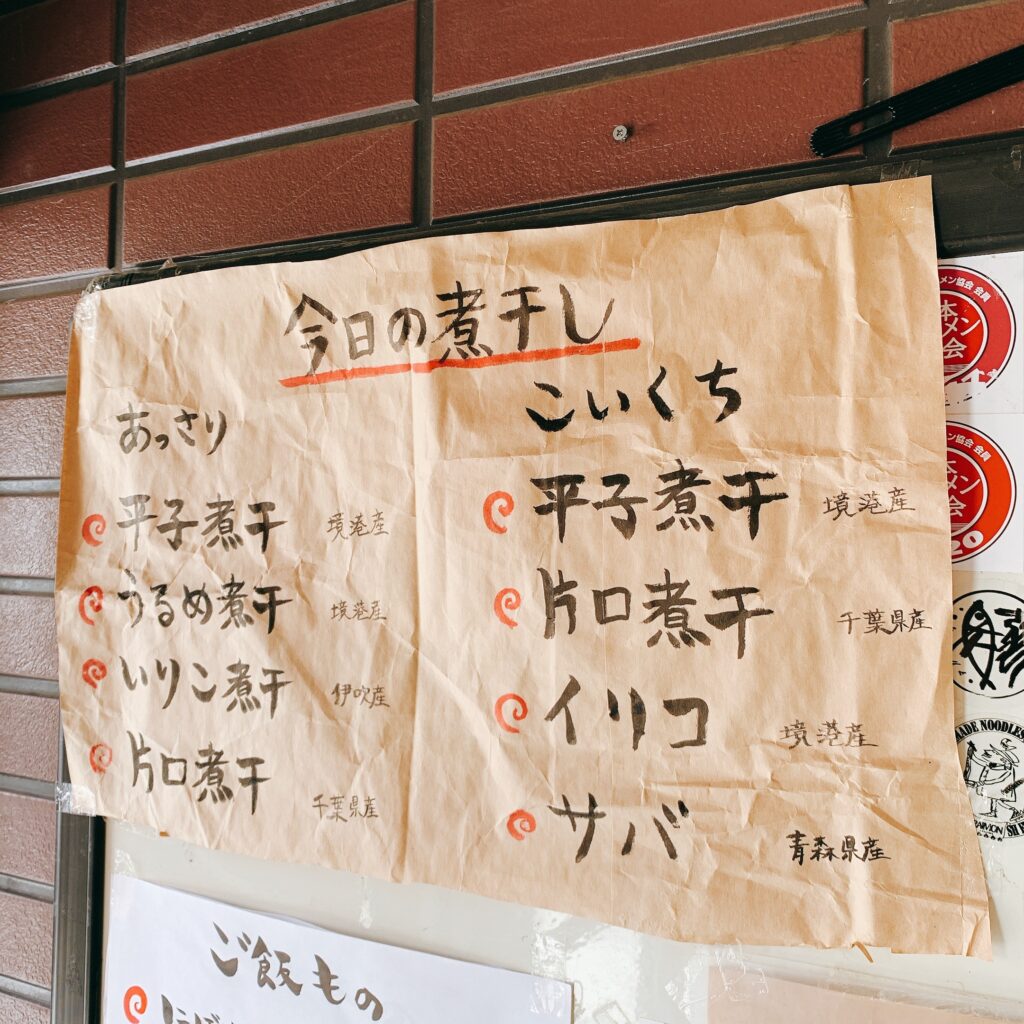 今日の煮干し
あっさり
平子煮干 境港産
うるめ煮干 境港産
いりこ煮干 伊吹産
片口煮干 千葉県産
こいくち
平子煮干 境港産
片口煮干 千葉県産
イリコ 境港産
サバ 青森県産
ご飯もの
メン協会 会員
本メン
会
メン協会 会員
メン
会
MADE NOODLES